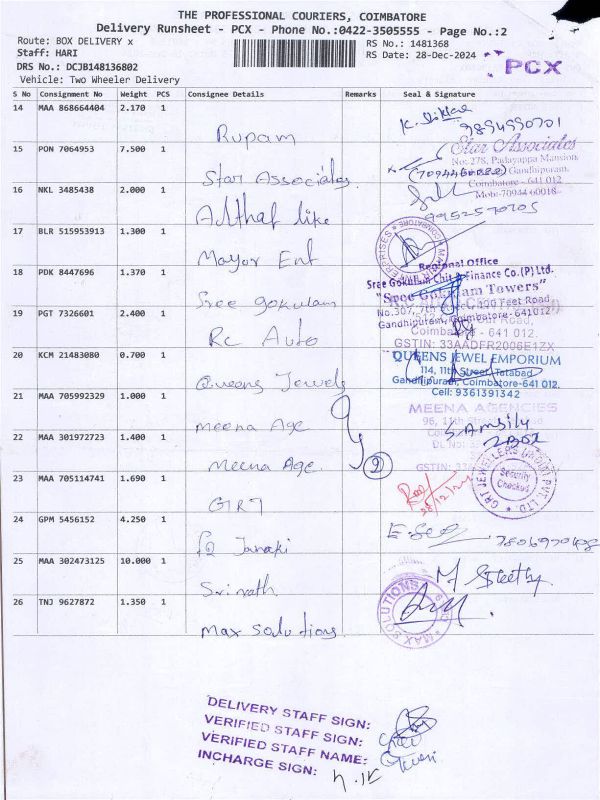 THE PROFESSIONAL COURIERS, COIMBATORE
Delivery Runsheet - PCX - Phone No.:0422-3505555 - Page No.:2
Route: BOX DELIVERY x
RS No.: 1481368
Staff: HARI
RS Date: 28-Dec-2024
PCX
DRS No.: DCJB148136802
Vehicle: Two Wheeler Delivery
S No Consignment No Weight PCS Consignee Details Remarks Seal & Signature
14 MAA 868664404 2.170 1
Rupam
9894990701
15 PON 7064953 7.500 1
Star Associates
Star Associates
No: 278, Padayappa Mansion,
Gandhipuram,
Coimbatore - 641 012
Mob: 70944 60018
16 NKL 3485438 2.000 1
like
9952570705
17 BLR 515953913 1.300 1
Mayor Ent
18 PDK 8447696 1.370 1
Sree gokulam
Regional Office
Sree Gokulam Chit & Finance Co.(P) Ltd.
"Sree Gokulam Towers"
No.307, 7th 100 Feet Road,
Gandhipuram, Coimbatore-641012
19 PGT 7326601 2.400 1
Rc Auto
Coimbatore - 641 012.
GSTIN: 33AADFR2006E1ZX
20 KCM 21483080 0.700 1
Queens Jewels
QUEENS JEWEL EMPORIUM
114, 11th Street, Tatabad,
Gandhipuram, Coimbatore-641 012.
Cell: 9361391342
21 MAA 705992329 1.000 1
Meena Age
MEENA AGENCIES
22 MAA 301972723 1.400 1
Meena Age.
2
GSTIN:
23 MAA 705114741 1.690 1
GRT
28/12/24
GRT JEWELLERS (INDIA) PVT. LTD.
Security
Checked
24 GPM 5456152 4.250 1
Janaki
25 MAA 302473125 10.000 1
Srinath
26 TNJ 9627872 1.350 1
Max Solutions.
MAX SOLUTIONS
DELIVERY STAFF SIGN:
VERIFIED STAFF SIGN:
VERIFIED STAFF NAME:
INCHARGE SIGN: